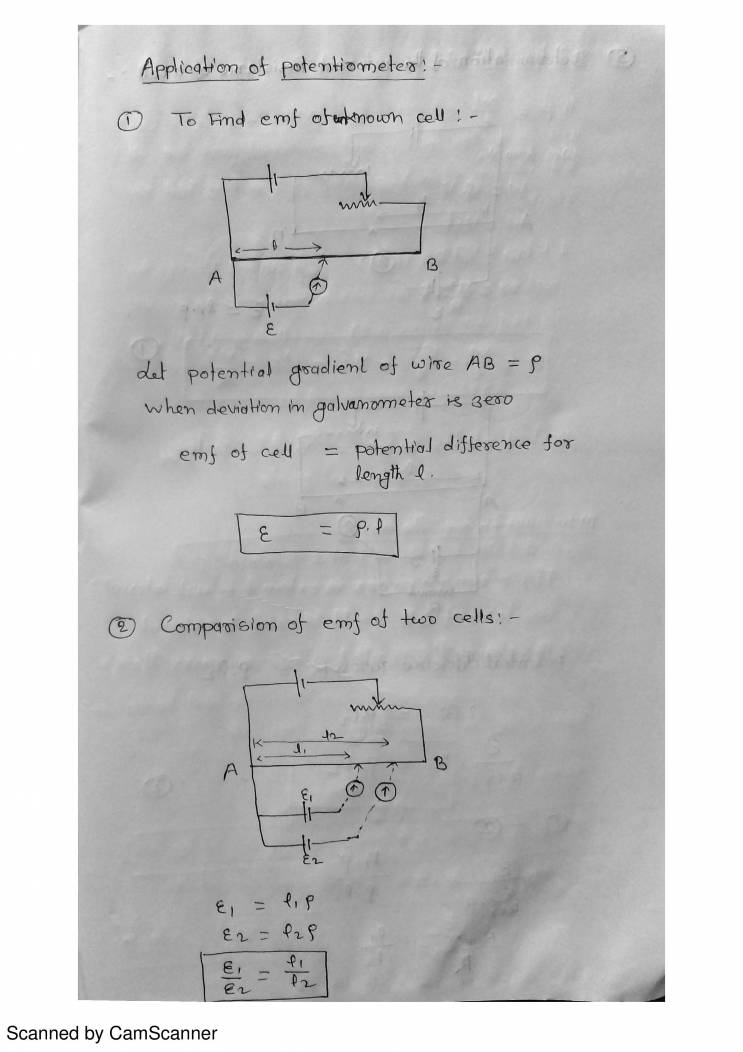 Application of potentiometer:-
① To Find emf of unknown cell :-
l
A
B
ε
Let potential gradient of wire AB = ρ
when deviation in galvanometer is zero
emf of cell = potential difference for
length l.
ε = ρ.l
② Comparision of emf of two cells:-
l2
l1
A
B
ε1
ε2
ε1 = l1 ρ
ε2 = l2 ρ
ε1/ε2 = l1/l2
Scanned by CamScanner